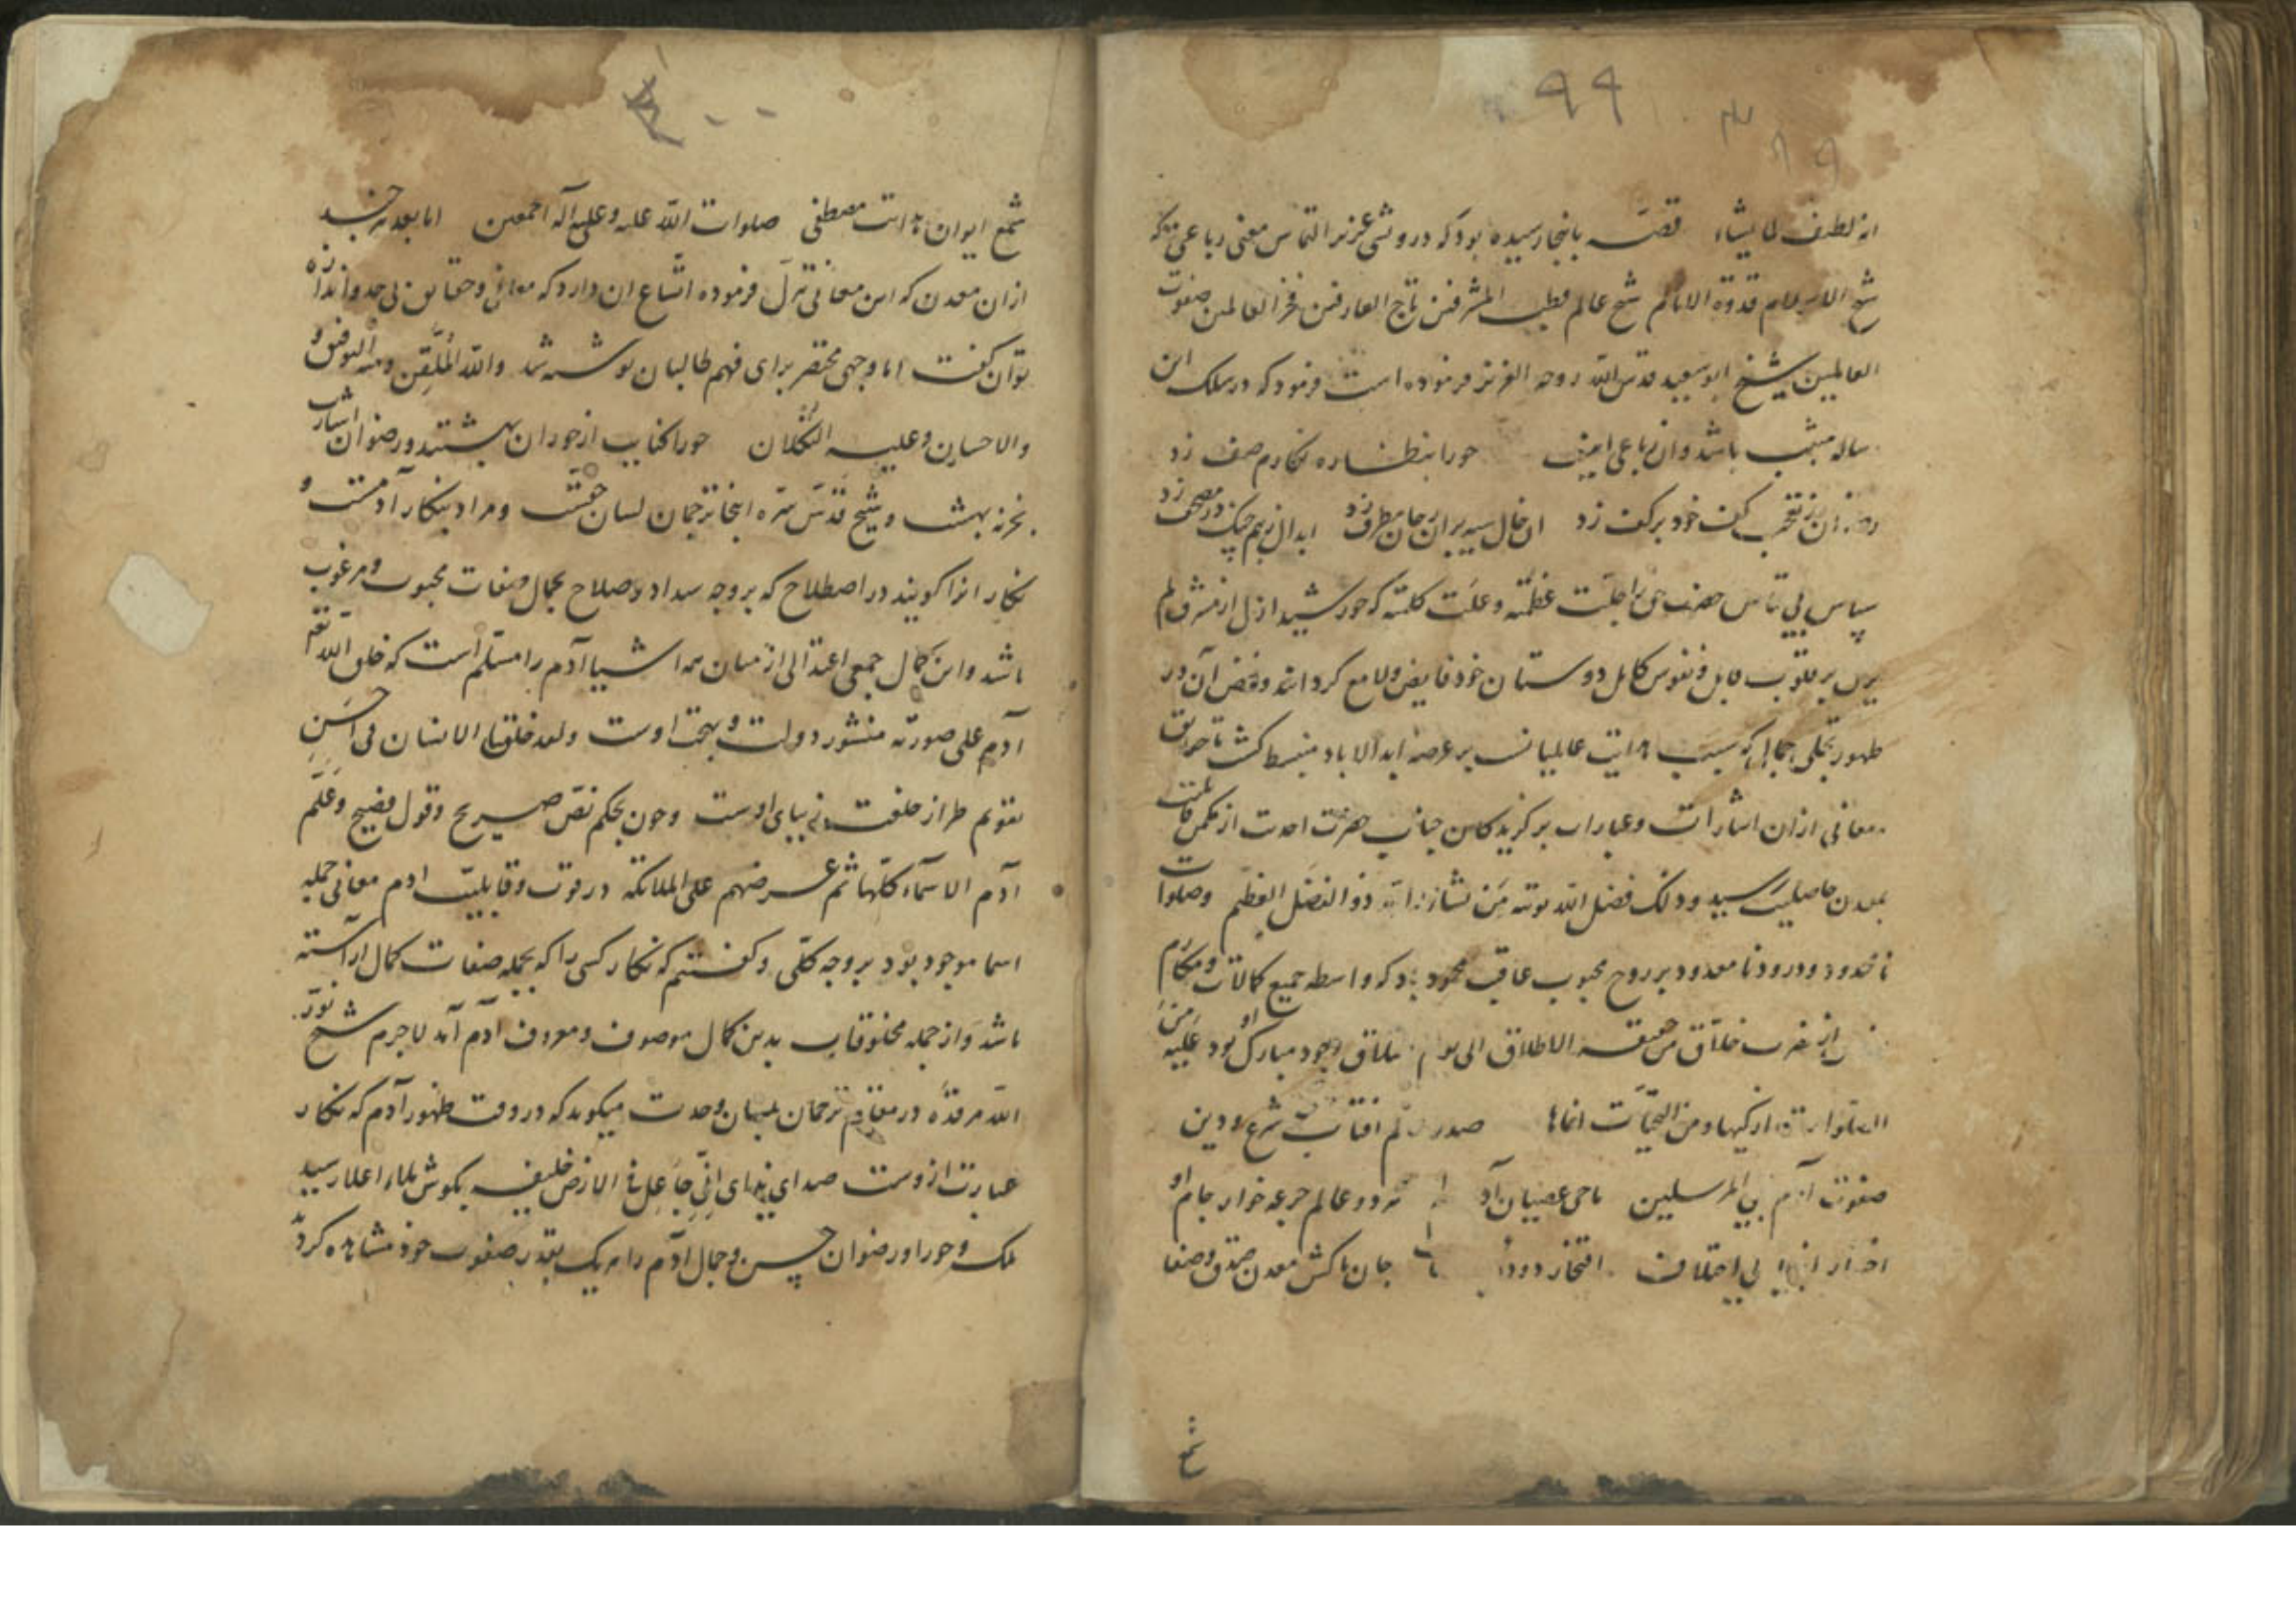 ۹۹
انه لطیف لما یشاء قصه باینجا رسیده بود که درویشی عزیز التماس معنی رباعی که
شیخ الاسلام قدوة الانام شیخ عالم قطب المشرقین تاج العارفین فخر العالمین صفوت
العالمین شیخ ابو سعید قدس الله روحه العزیز فرموده است فرمود که در سلک این
ساله مثبت باشد و آن رباعی اینست حورا بنظاره نکارم صف زد
رضوان ز تعجب کف خود بر کف زد آن خال سیه بر آن رخان مطرف زد ابدال ز بیم چنک در مصحف زد
سپاس بی قیاس حضرت حق را جلت عظمته و علت کلمته که خورشید ازل از مشرق لم
یزل بر قلوب قابل و نفوس کامل دوستان خود فایض و لامع کردانید و فیض آن در
ظهور تجلی جمالی که سبب هدایت عالمیانست بر عرصه ابد الاباد منبسط کشت تا حقایق
معانی از ان اشارات و عبارات برکزیدکان جناب حضرت احدیت از مکمن قابلیت
بمعدن حاصلیت رسید و ذلک فضل الله یوتیه من یشاء و الله ذو الفضل العظیم وصلوات
نا محدود و درود نا معدود بر روح محبوب عاقبت محمود باد که واسطه جمیع کمالات و مکارم
از حضرت خلاق من حقیقه الاطلاق الی یوم التلاق وجود مبارک او بود علیه من
الصلوات ازکیها و من التحیات انماها صدر عالم افتاب شرع و دین
صفوت آدم نبی المرسلین ماحی عصیان آدم هر دو عالم جرعه خوار جام او
اختیار انبیا بی اختلاف افتخار دودۀ جان پاکش معدن صدق و صفا
شمع
شمع ایوان هدایت مصطفی صلوات الله علیه و علی آله اجمعین اما بعد هر چند
از ان معدن که این معانی تنزل فرموده اتساع ان دارد که معانی و حقایق بی حد و اندازه
توان کفت اما وجهی مختصر برای فهم طالبان نوشته شد والله الملقن و منه التوفیق و
الاحسان و علیه التکلان حورا کنایت از حوران بهشتند و رضوان اشارت
بخزنه بهشت و شیخ قدس سره اینجا ترجمان لسان حقست و مراد بنکار آدمست و
نکار انرا کویند در اصطلاح که بر وجه سداد و صلاح بجمال و صفات محبوب و مرغوب
باشد و این کمال جمعی اعتدالی از میان همه اشیا آدم را مسلم است که خلق الله تعالی
آدم علی صورته منشور دولت و بهجت اوست و لقد خلقنا الانسان فی احسن
تقویم طراز خلعت زیبای اوست و چون بحکم نص صریح و قول فصیح و علم
آدم الاسماء کلها ثم عرضهم علی الملائکة در قوت و قابلیت ادم معانی جمله
اسما موجود بود بر وجه کلی و کفتیم که نکار کسی را که بجمله صفات کمال اراسته
باشد و از جمله مخلوقات بدین کمال موصوف و معروف آدم آمد لاجرم شیخ نور
الله مرقده در مقام ترجمان بلسان وحدت میکوید که در وقت ظهور آدم که نکار
عبارت ازوست صدای ندای انی جاعل فی الارض خلیفه بکوش ملاء اعلا رسید
ملک و حورا و رضوان حسن و جمال آدم را هر یک بقدر صفوت خود مشاهده کرد